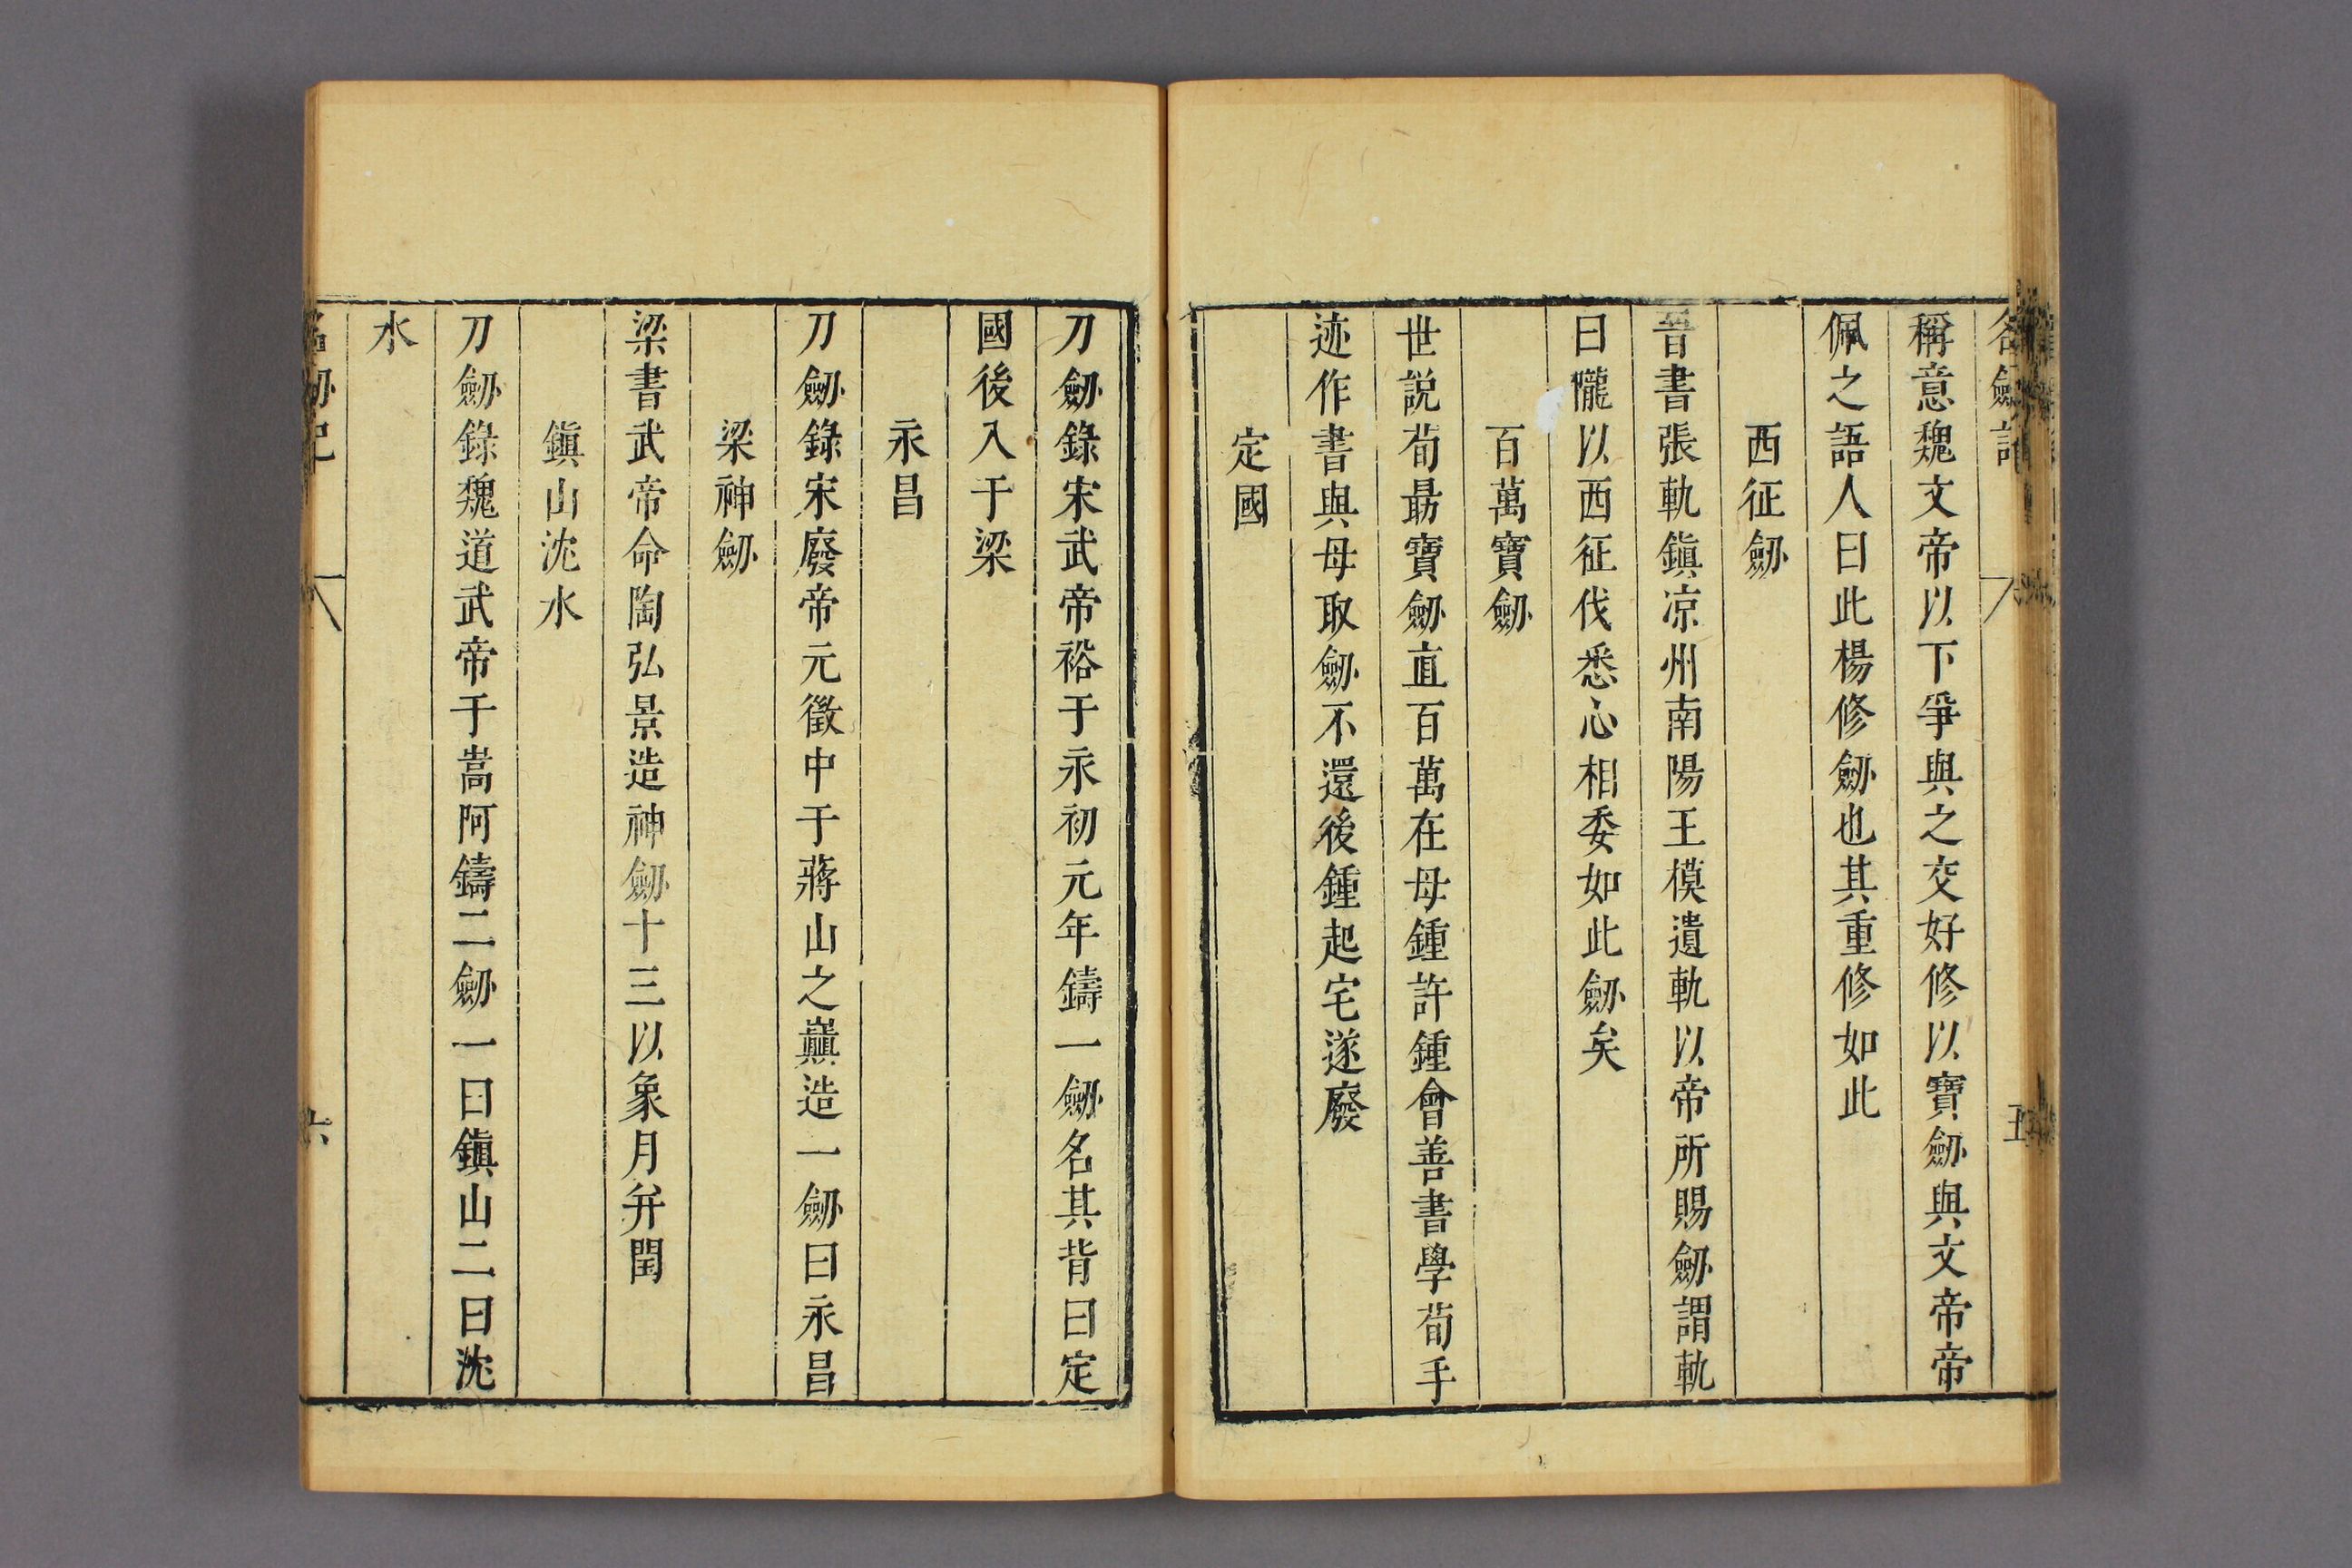 名劔記 五
稱意魏文帝以下爭與之交好修以寶劔與文帝帝
佩之語人曰此楊修劔也其重修如此
西征劔
晋書張軌鎮凉州南陽王模遺軌以帝所賜劔謂軌
曰隴以西征伐悉心相委如此劔矣
百萬寶劔
世説荀勗寶劔直百萬在母鍾許鍾會善書學荀手
迹作書與母取劔不還後鍾起宅遂廢
定國
刀劔錄宋武帝裕于永初元年鑄一劔名其背曰定
國後入于梁
永昌
刀劔錄宋廢帝元徽中于蔣山之巓造一劔曰永昌
梁神劔
梁書武帝命陶弘景造神劔十三以象月并閏
鎮山沈水
刀劔錄魏道武帝于嵩阿鑄二劔一曰鎮山二曰沈
水
名劔記 六